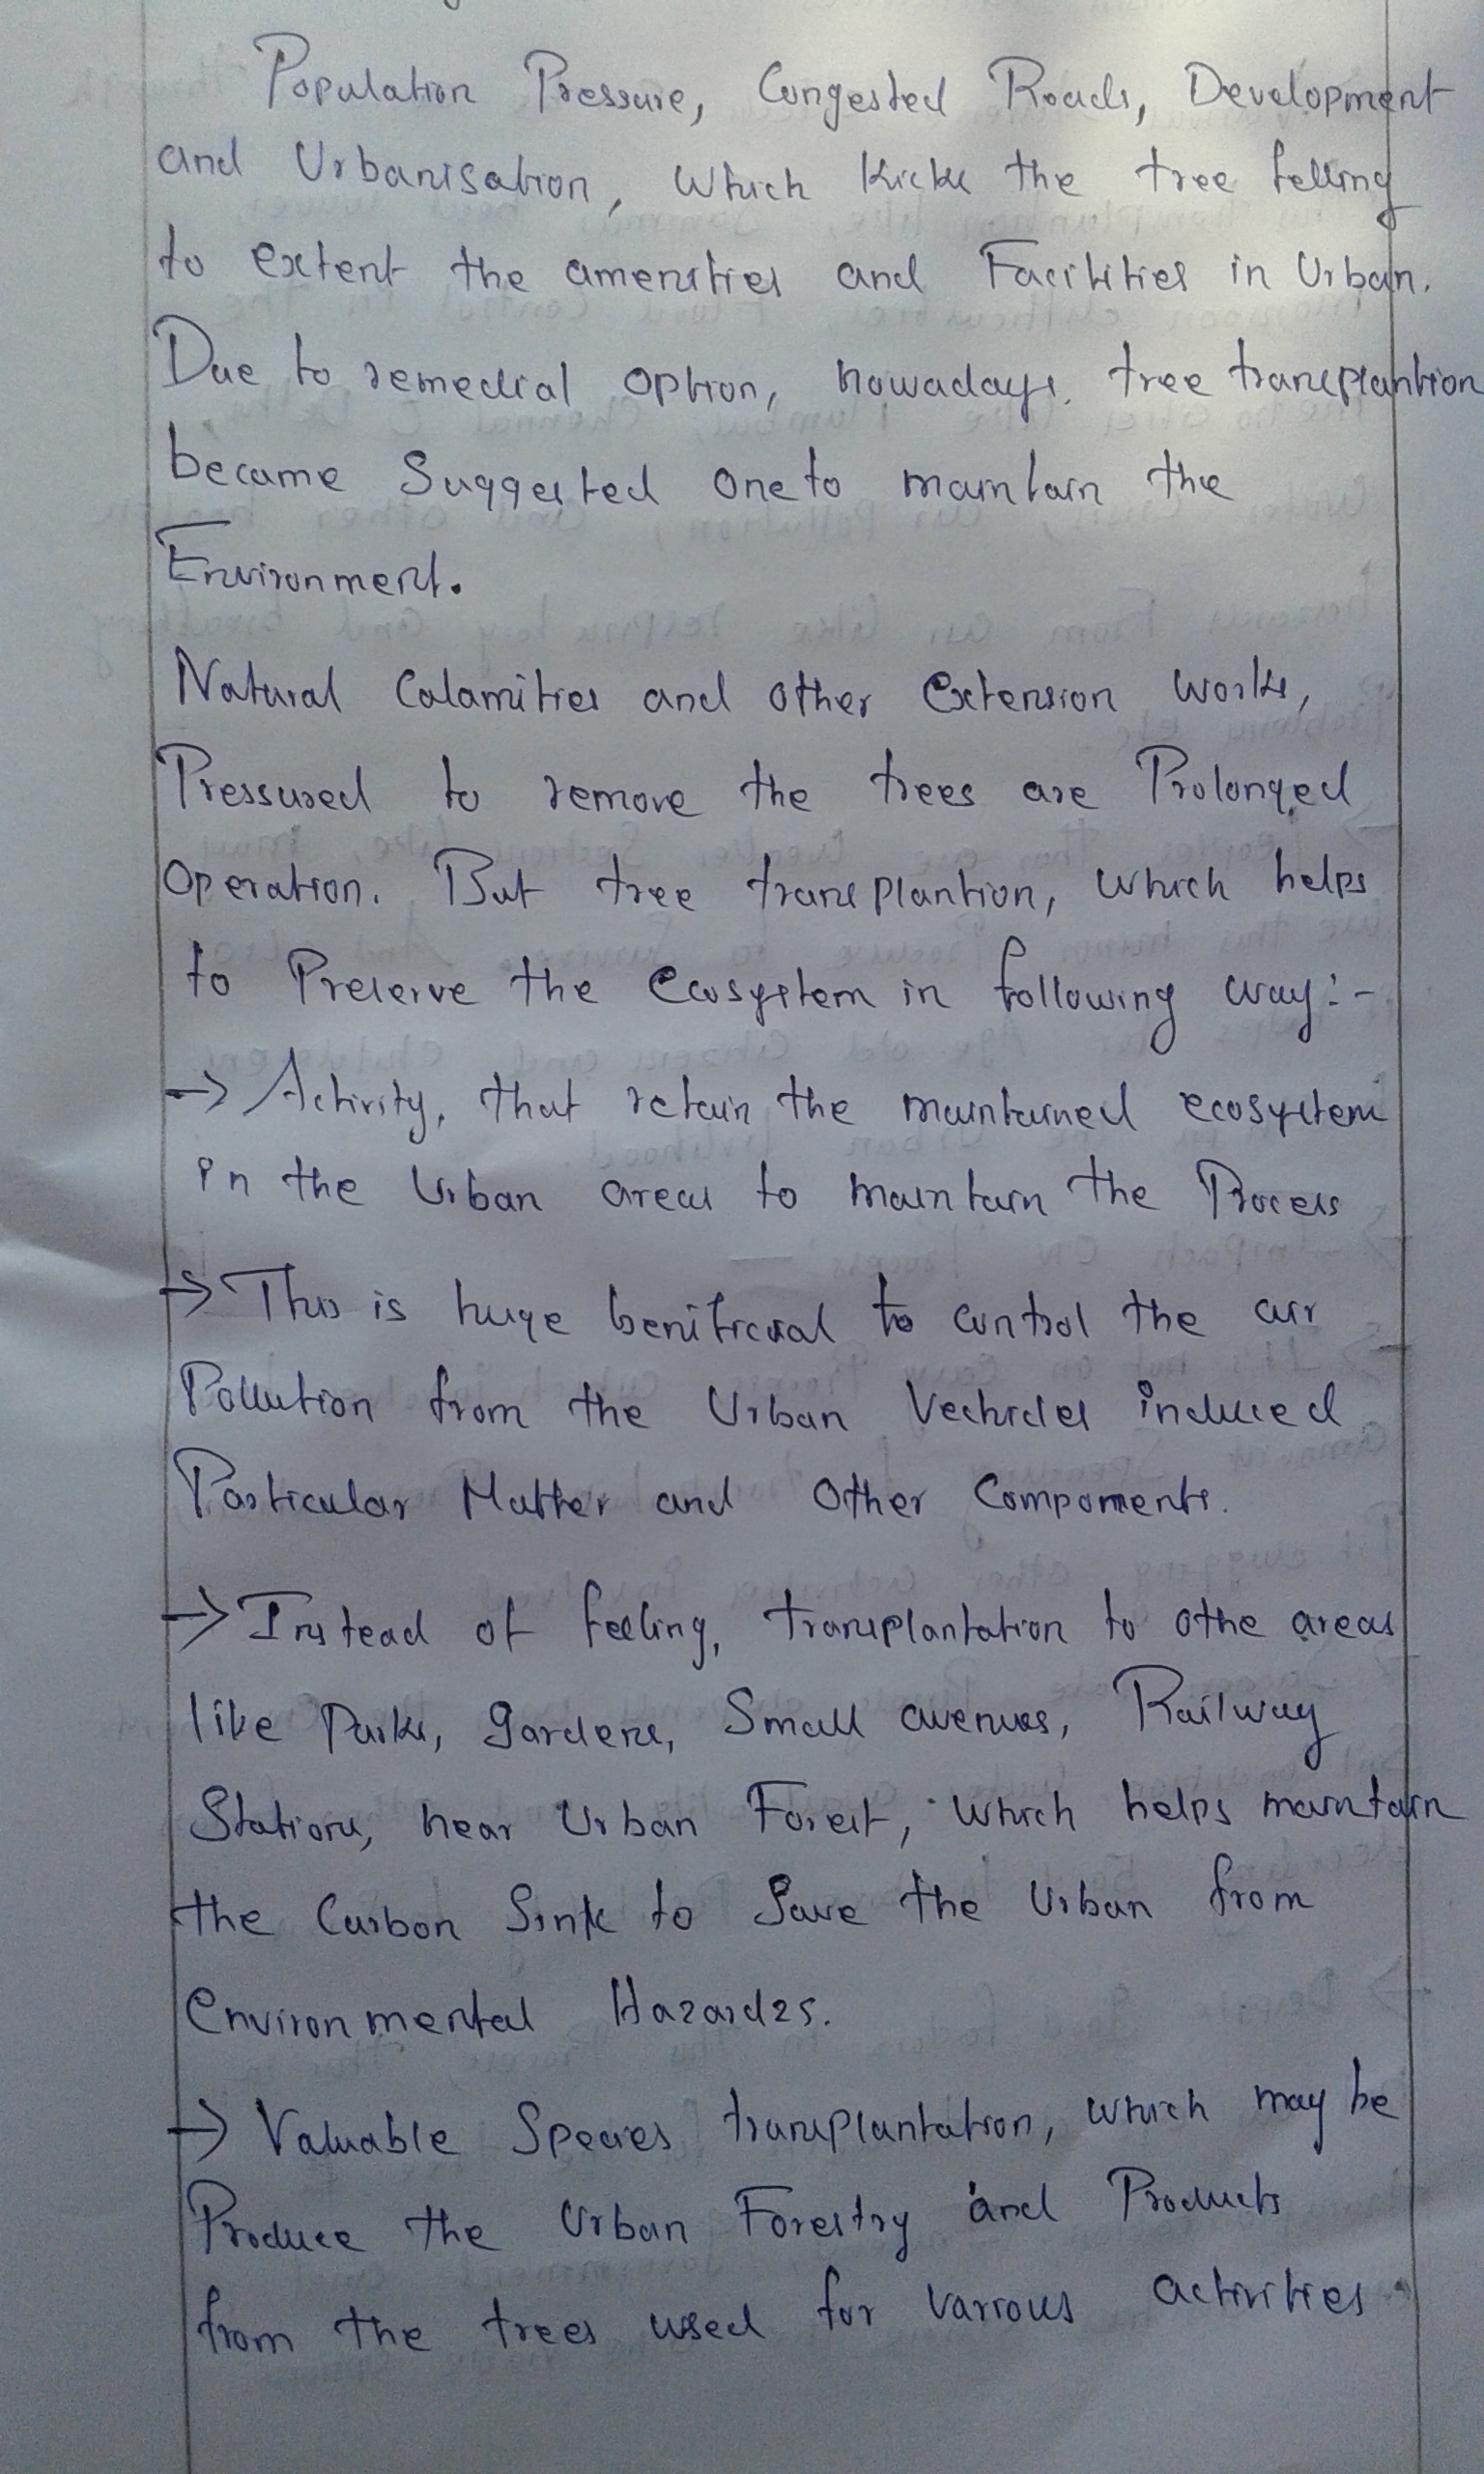 Population Pressure, Congested Roads, Development
and Urbanisation, Which kicks the tree felling
to extent the amenities and Facilities in Urban.
Due to remedial option, nowadays, tree transplantion
became Suggested one to maintain the
Environment.
Natural Calamities and other Extension works,
Pressured to remove the trees are Prolonged
Operation. But tree transplantion, which helps
to Preserve the Ecosystem in following way:-
→ Activity, that retain the maintained ecosystem
in the Urban areas to maintain the Process
→ This is huge benificial to control the air
Pollution from the Urban Vechicles induced
Particular Matter and Other Components.
→ Instead of feeling, transplantation to othe areas
like Parks, gardens, Small avenues, Railway
Stations, near Urban Forest, which helps maintain
the Carbon Sink to Save the Urban from
Environmental Hazardzs.
→ Valuable Species transplantation, which may be
Produce the Urban Forestry and Products
from the trees used for various activities